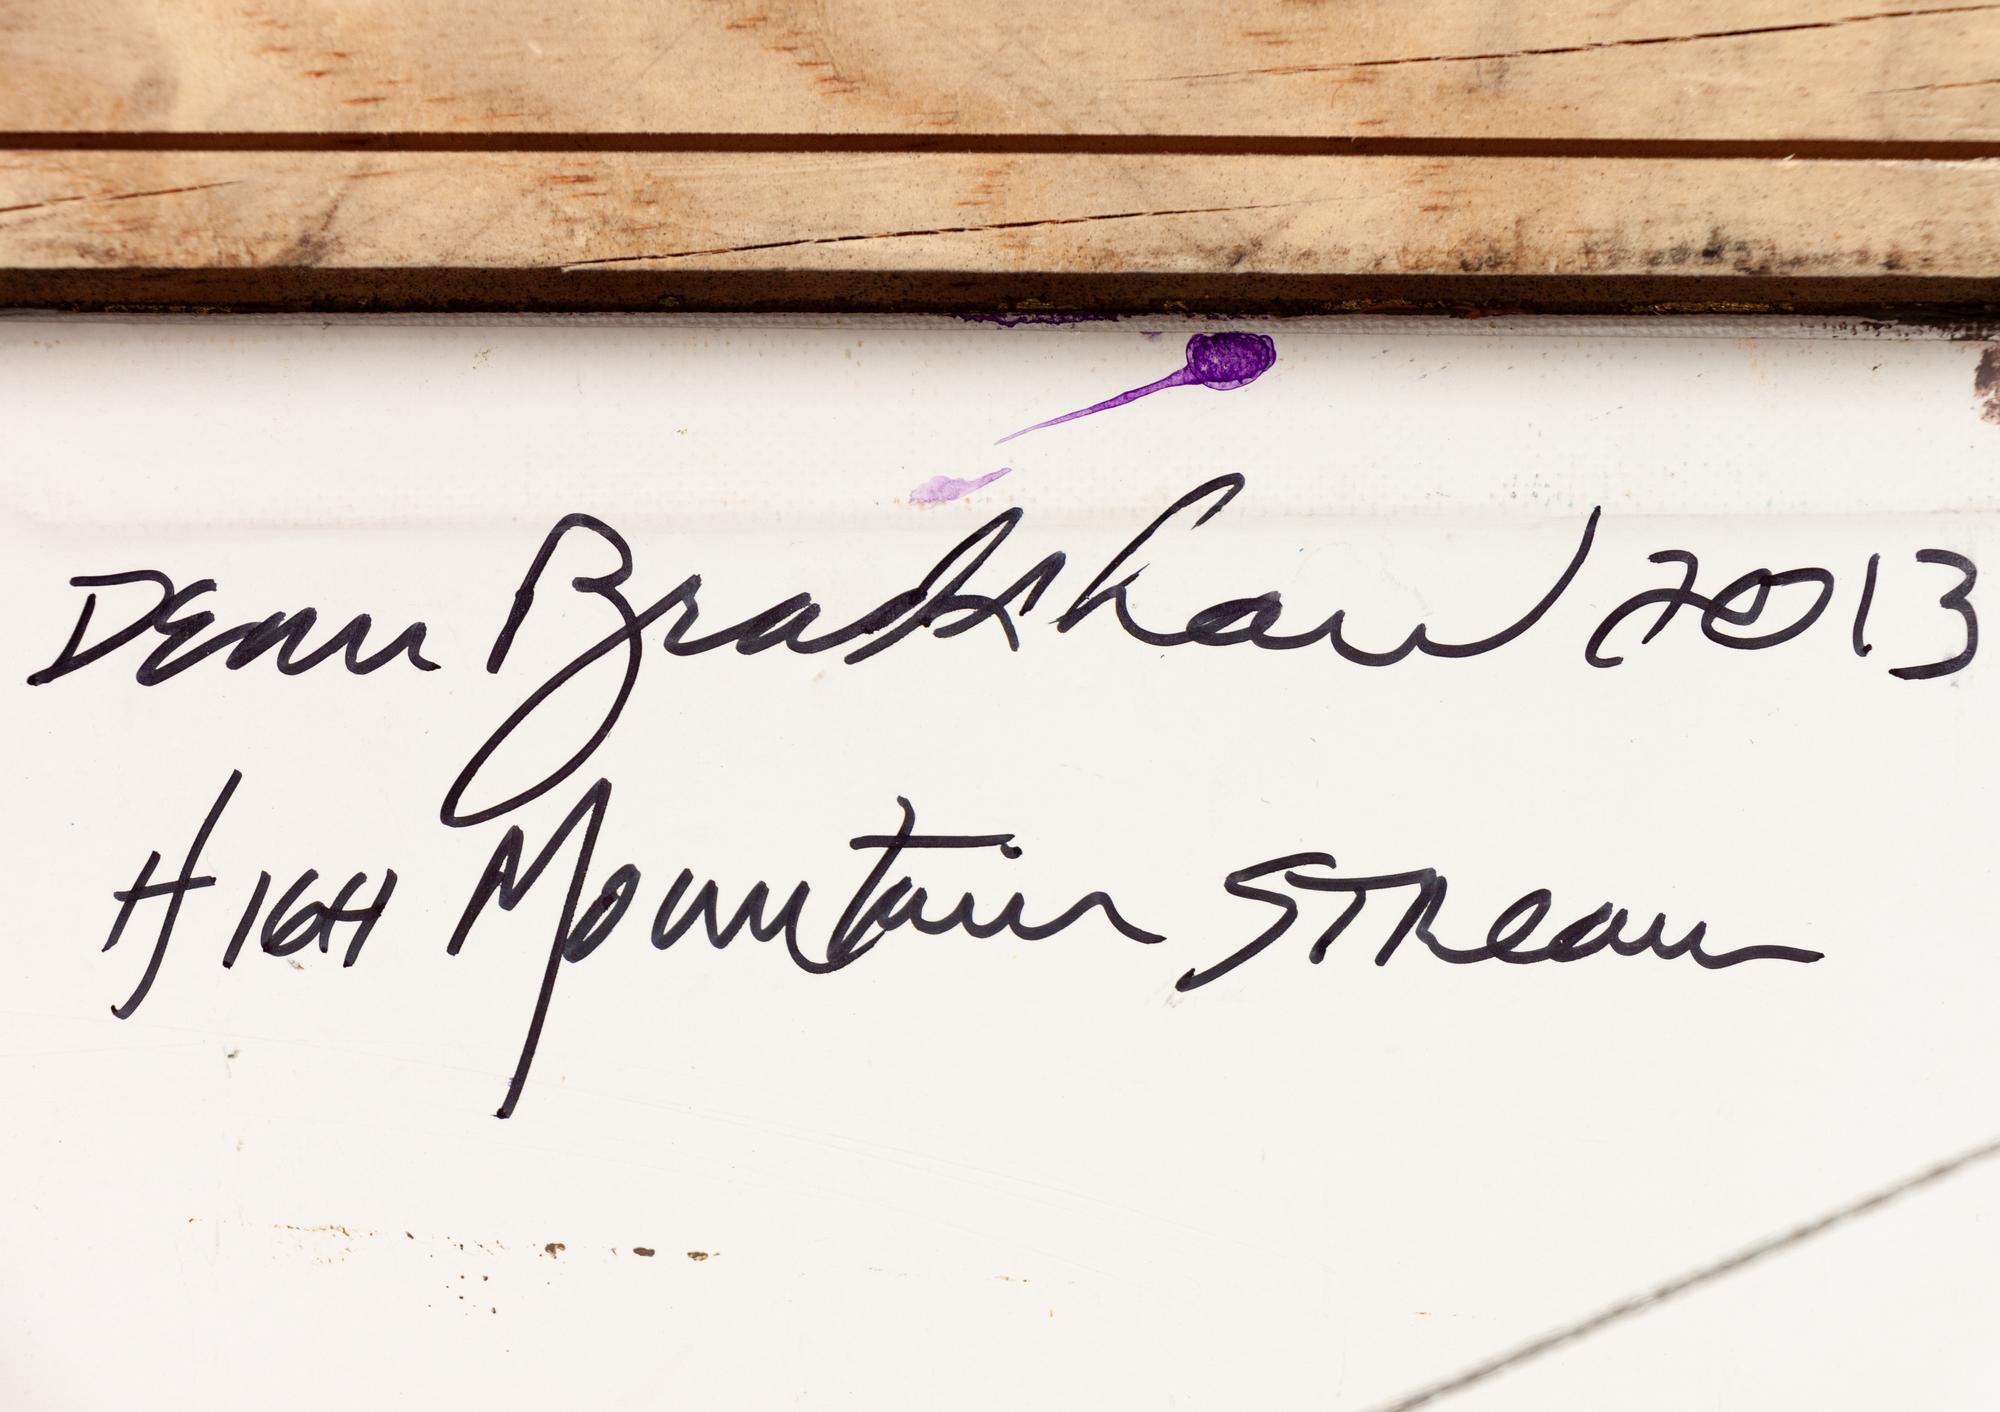 Dean Bradshaw 2013
HIGH Mountain STReam